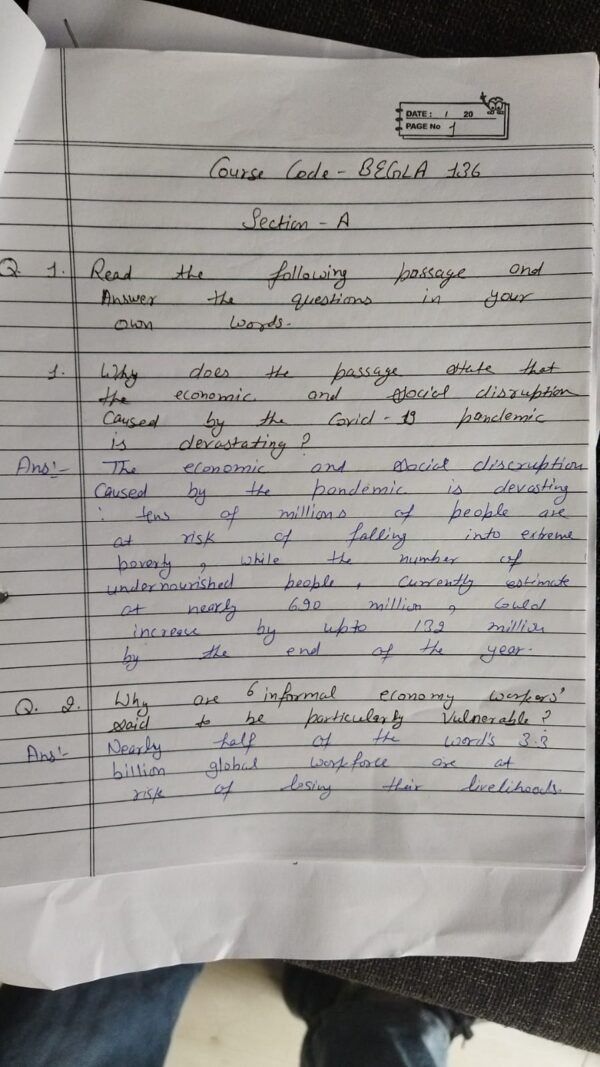 DATE : / 20
PAGE No 1
Course Code - BEGLA 136
Section - A
Q. 1. Read the following passage and
Answer the questions in your
own words.
1. Why does the passage state that
the economic and social disruption
Caused by the Covid - 19 pandemic
is devastating ?
Ans:- The economic and social discruption
Caused by the pandemic is devasting
: tens of millions of people are
at risk of falling into extreme
poverty, while the number of
undernourished people, currently estimate
at nearly 690 million, could
increase by upto 132 million
by the end of the year.
Q. 2. Why are 6 informal economy workers'
said to be particularly vulnerable ?
Ans:- Nearly half of the word's 3.3
billion global workforce are at
risk of losing their livelihoods.